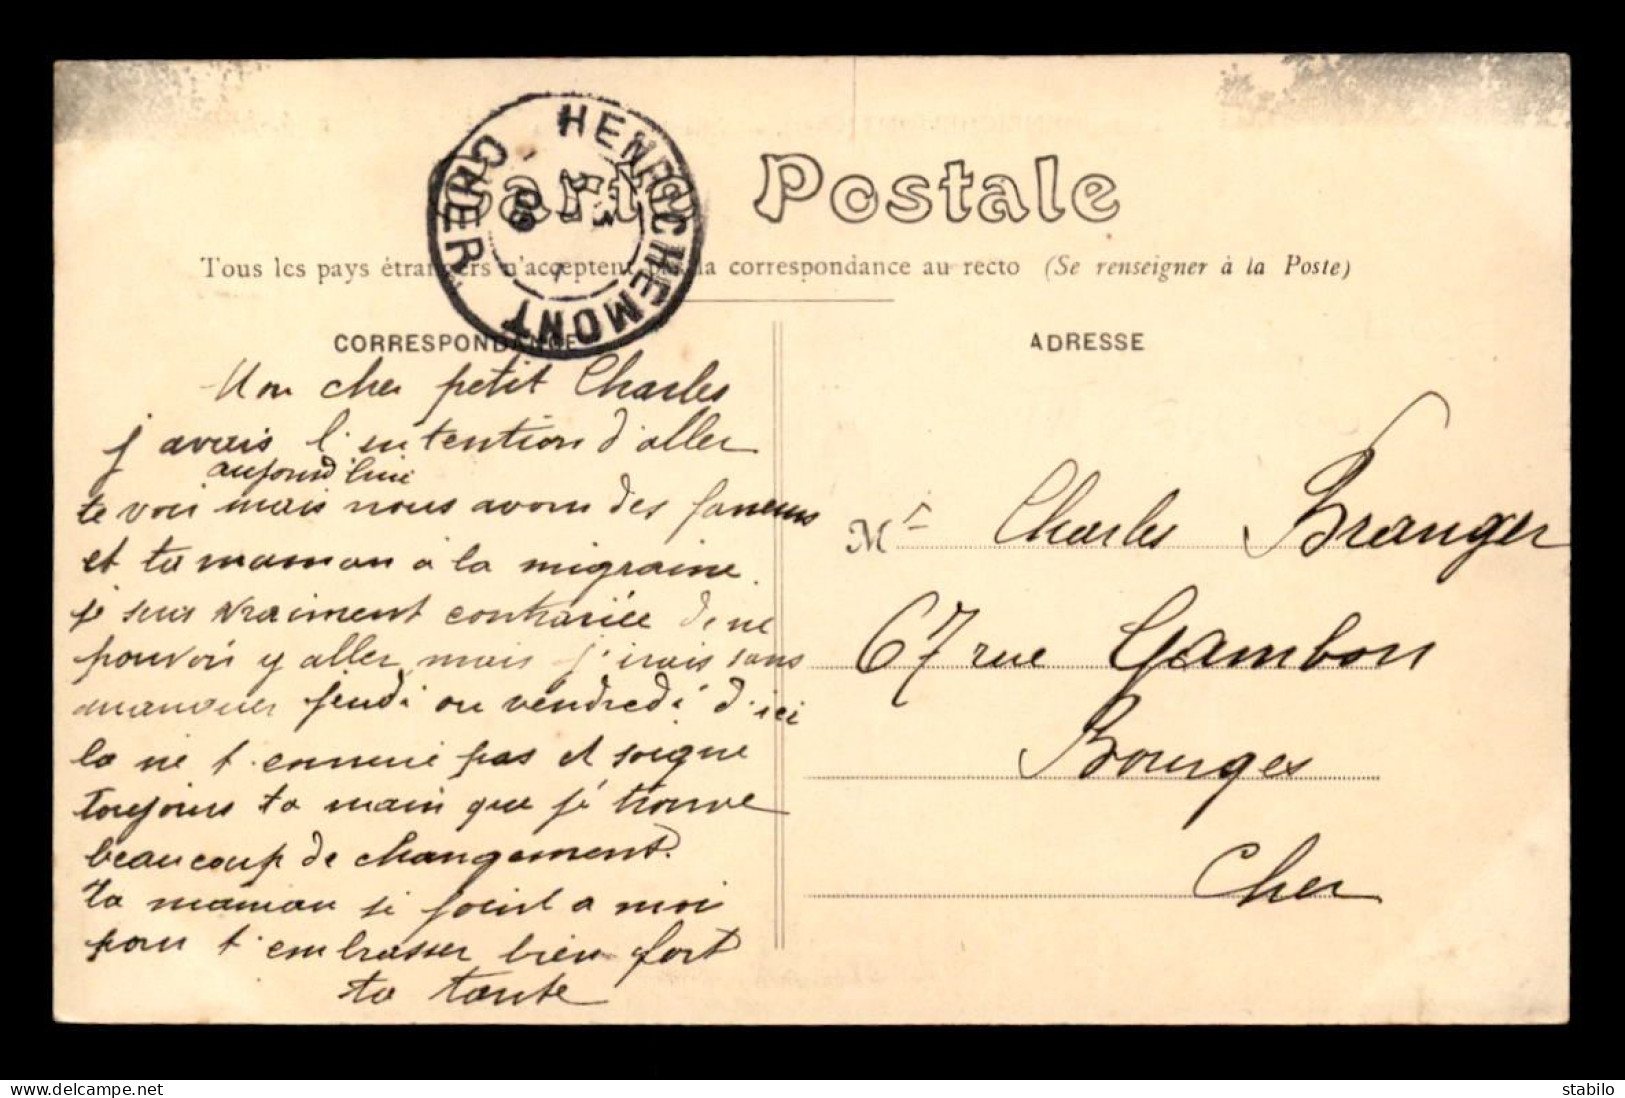 Carte Postale
Tous les pays étrangers n'acceptent pas la correspondance au recto (Se renseigner à la Poste)
HENRICHEMONT
CHER
09
CORRESPONDANCE
Mon cher petit Charles
j avais l'intention d'aller
aujourd'hui
te voir mais nous avons des
et ta maman a la migraine
je suis vraiment contrariée de ne
pouvoir y aller mais j'irais sans
manquer jeudi ou vendredi d'ici
la ne t ennuie pas et soigne
toujours ta main que je trouve
beaucoup de changement.
ta maman se joint a moi
pour t'embrasser bien fort
ta tante
ADRESSE
Mr Charles Branger
67 rue Gambon
Bourges
Cher
delcampe.net
stabilo